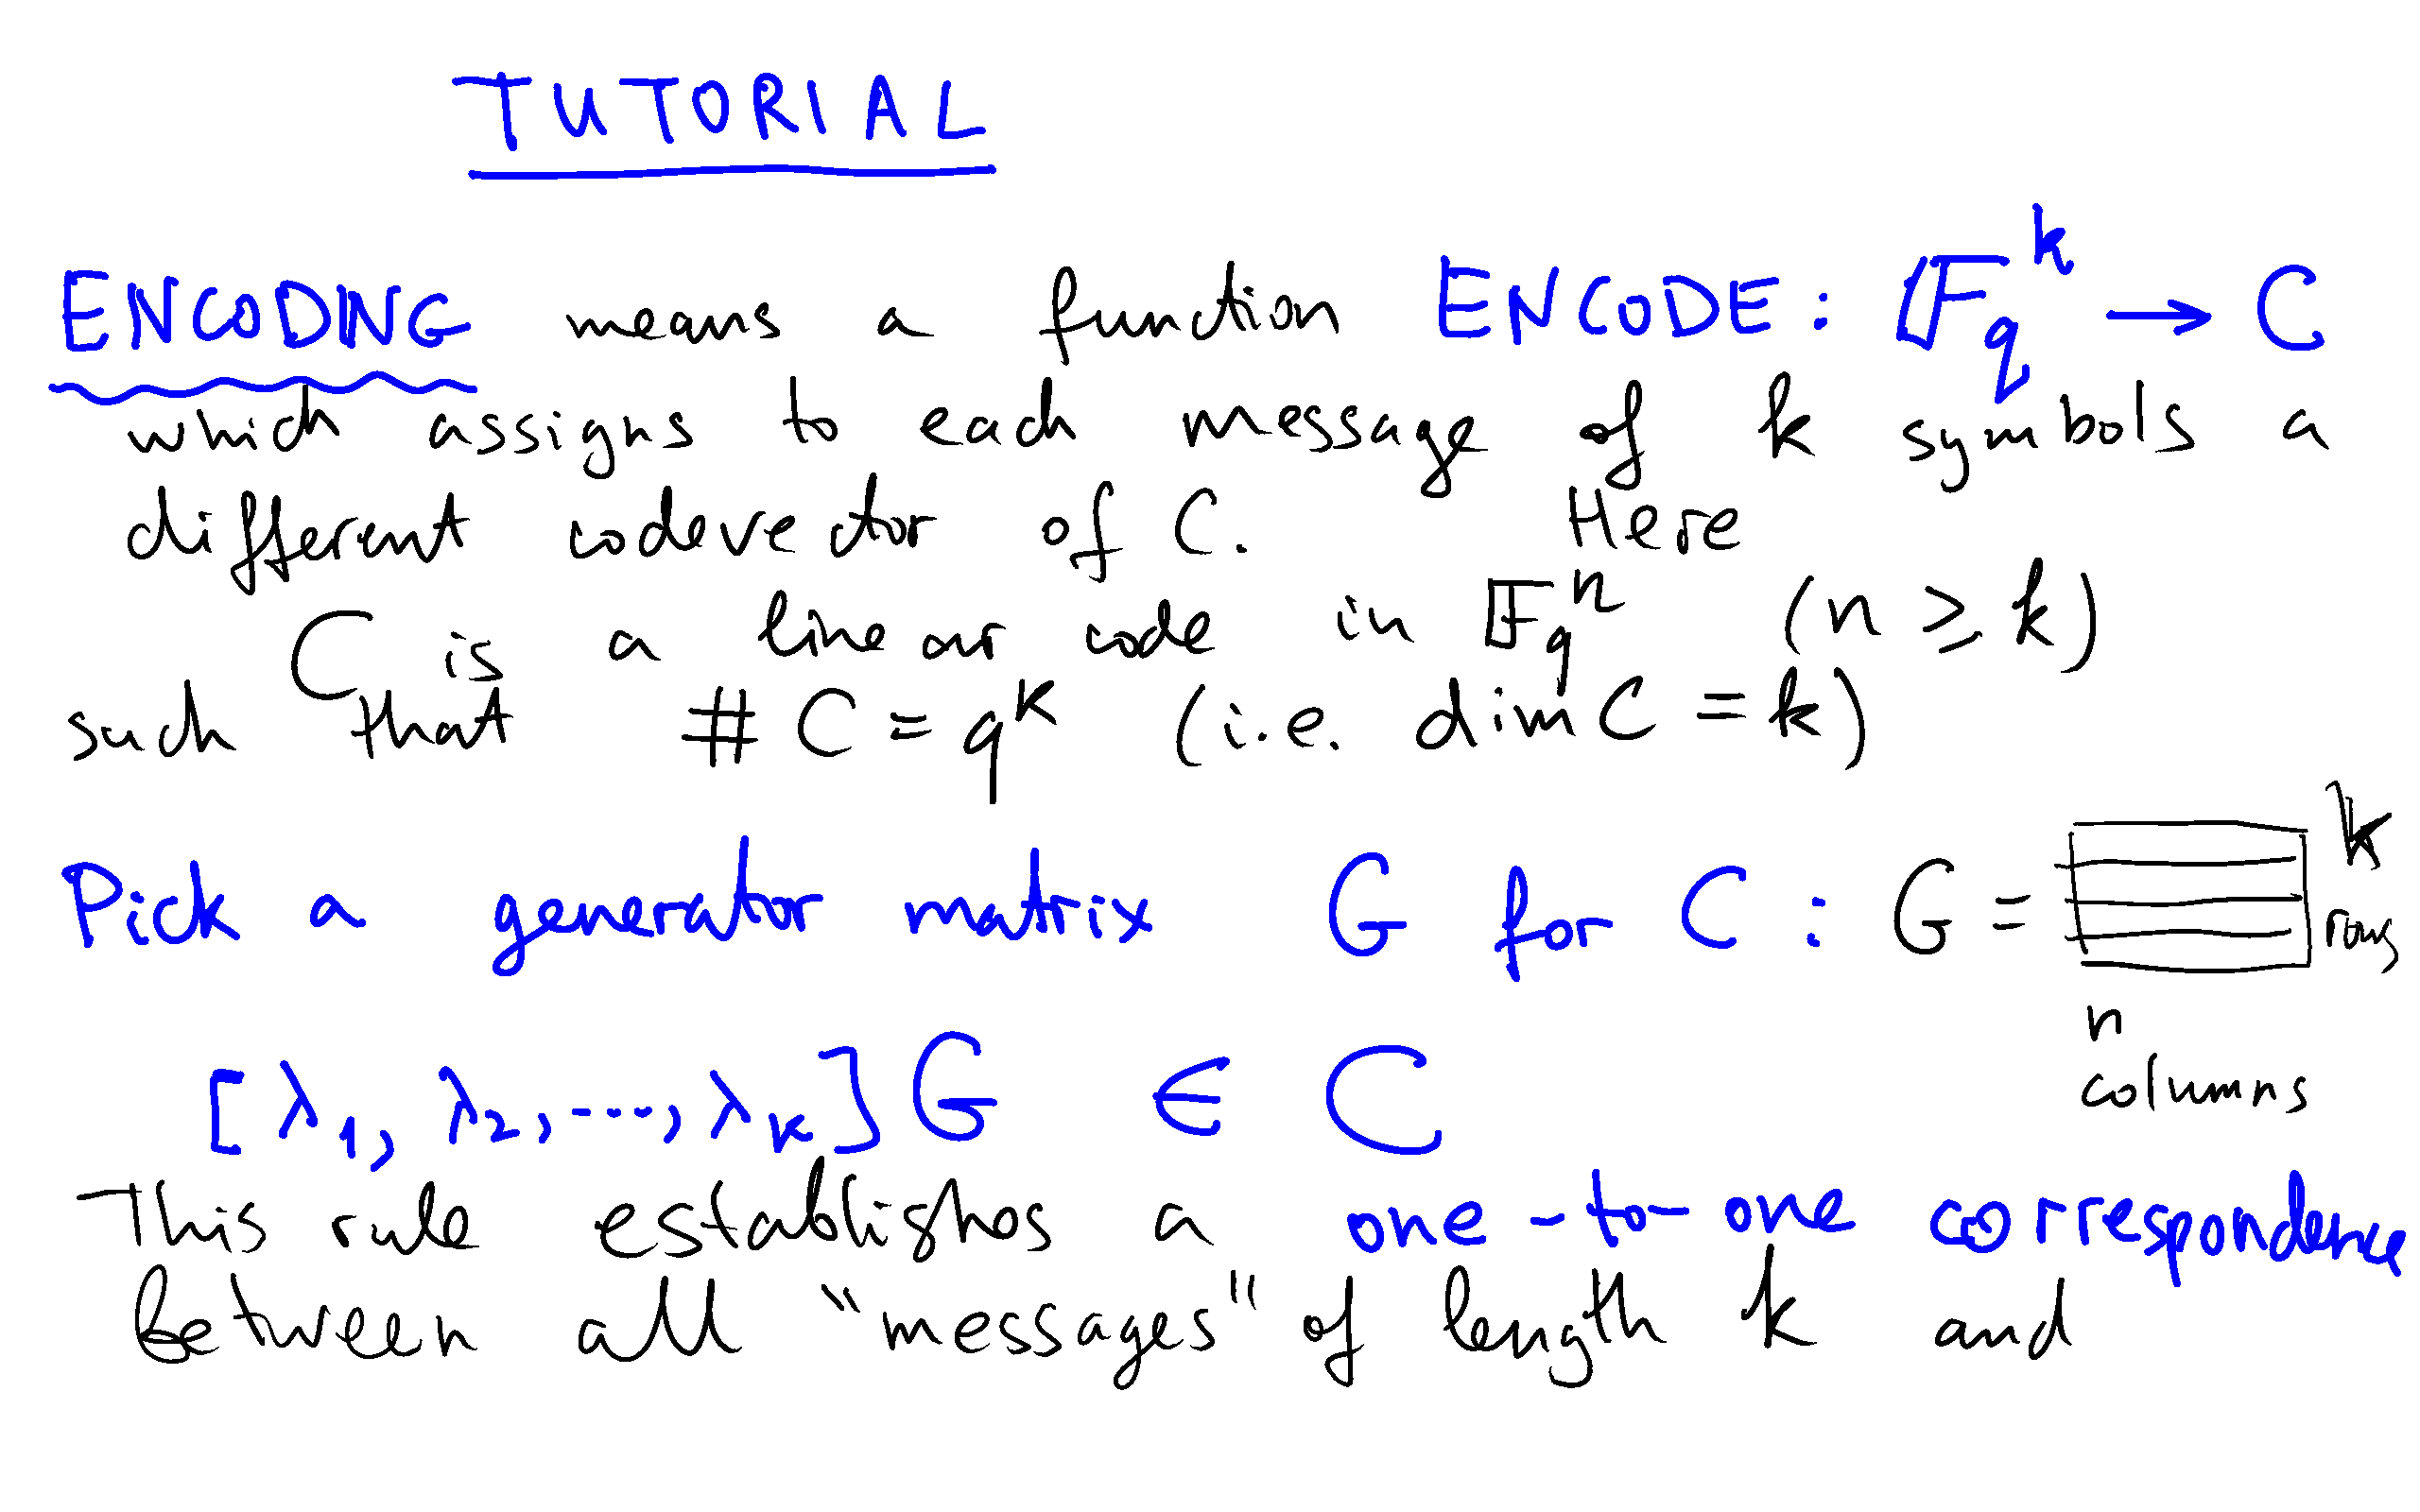 TUTORIAL
ENCODING means a function ENCODE: 𝔽_q^k → C
which assigns to each message of k symbols a
different codevector of C. Here
C is a linear code in 𝔽_q^n (n ≥ k)
such that # C = q^k (i.e. dim C = k)
Pick a generator matrix G for C : G =
k
rows
n
columns
[λ_1, λ_2, ..., λ_k] G ∈ C
This rule establishes a one-to-one correspondence
between all "messages" of length k and